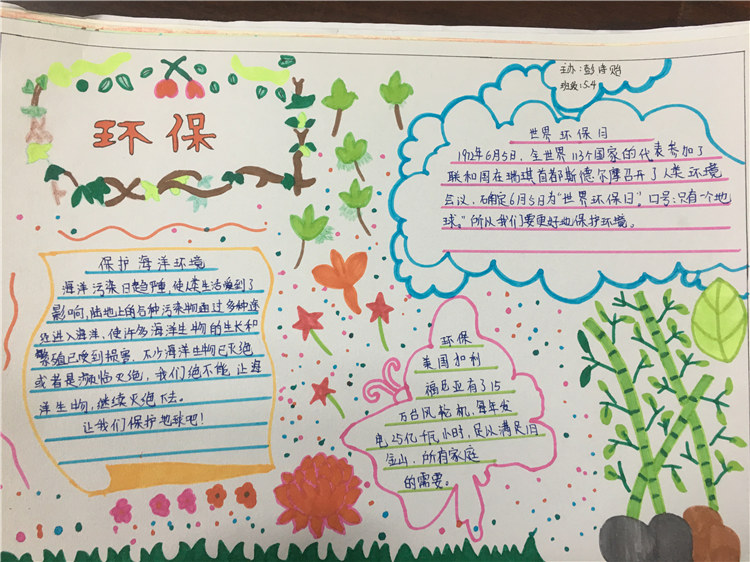 环保
主办:彭诗贻
班级:5.4
世界环保日
1972年6月5日,全世界113个国家的代表参加了
联和国在瑞琪首都斯德尔摩召开了人类环境
会议,确定6月5日为“世界环保日”。口号:只有一个地
球。”所以我们要更好地保护环境。
保护海洋环境
海洋污染日趋严重,使人类生活受到了
影响,陆地上的各种污染物通过多种途
径进入海洋,使许多海洋生物的生长和
繁殖已受到损害,不少海洋生物已灭绝
或者是濒临灭绝,我们绝不能,让海
洋生物,继续灭绝下去。
让我们保护地球吧!
环保
美国加利
福尼亚有了15
万台风轮机,每年发
电25亿千瓦小时,足以满足旧
金山,所有家庭
的需要。